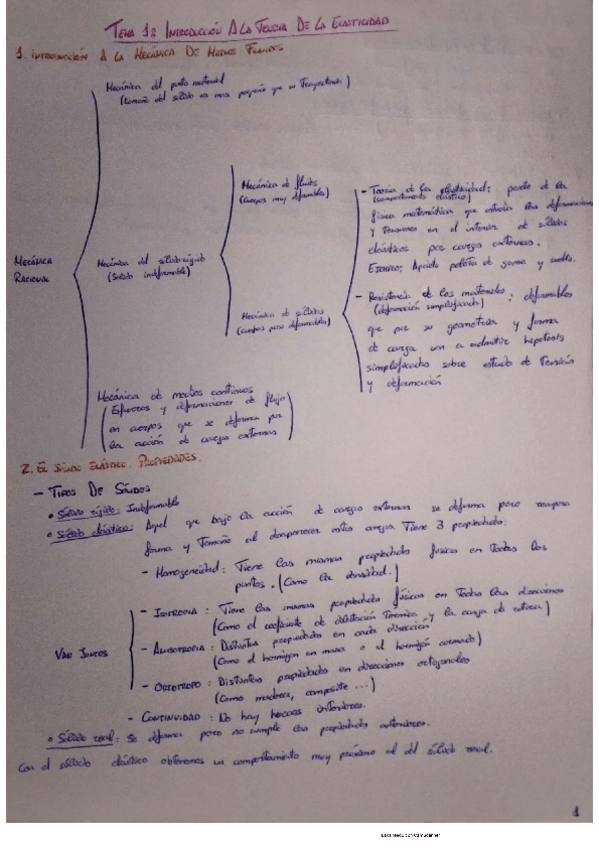 TEMA 1: INTRODUCCIÓN A LA TEORIA DE LA ELASTICIDAD
1. INTRODUCCIÓN A LA MECÁNICA DE MEDIOS
MECÁNICA RACIONAL
Mecánica del punto material
(tamaño del sólido es mas pequeño que su Trayectoria)
Mecánica del sólido rígido
(Sólido indeformable)
Mecánica de medios continuos
(Esfuerzos y deformaciones de flujo
en cuerpos que se deforman por
la acción de cargas externas)
Mecánica de fluidos
(cuerpos muy deformables)
Mecánica de sólidos
(cuerpos poco deformables)
- Teoria de la elasticidad: parte de la
(comportamiento elástico)
física matemática que estudia las deformaciones
y tensiones en el interior de sólidos
elásticos por cargas externas.
EJEMPLO: Aprieto pelota de goma y suelto.
- Resistencia de los materiales: deformables
(deformación simplificada)
que por su geometria y forma
de carga van a admitir hipotesis
simplificadas sobre estado de Tensión
y deformación
2. EL SÓLIDO ELÁSTICO. PROPIEDADES.
- TIPOS DE SÓLIDOS
• Sólido rígido: Indeformable
• Sólido elástico: Aquel que bajo la acción de cargas externas se deforma pero recupera
forma y Tamaño al desaparecer estas cargas. Tiene 3 propiedades:
- Homogeneidad: Tiene las mismas propiedades físicas en todos los
puntos. (Como la densidad.)
VAN JUNTOS
- ISOTROPIA: Tiene las mismas propiedades físicas en Todas las direcciones
(Como el coeficiente de dilatación Termica y la carga de rotura)
- ANISOTROPIA: Distintas propiedades en cada dirección
(Como el hormigón en masa o el hormigón armado)
- ORTOTROPO: Distintas propiedades en direcciones ortogonales
(Como madera, composite ...)
- CONTINUIDAD: No hay huecos interiores.
• Sólido real: Se deforma pero no cumple las propiedades anteriores.
Con el sólido elástico obtenemos un comportamiento muy próximo al del sólido real.
1